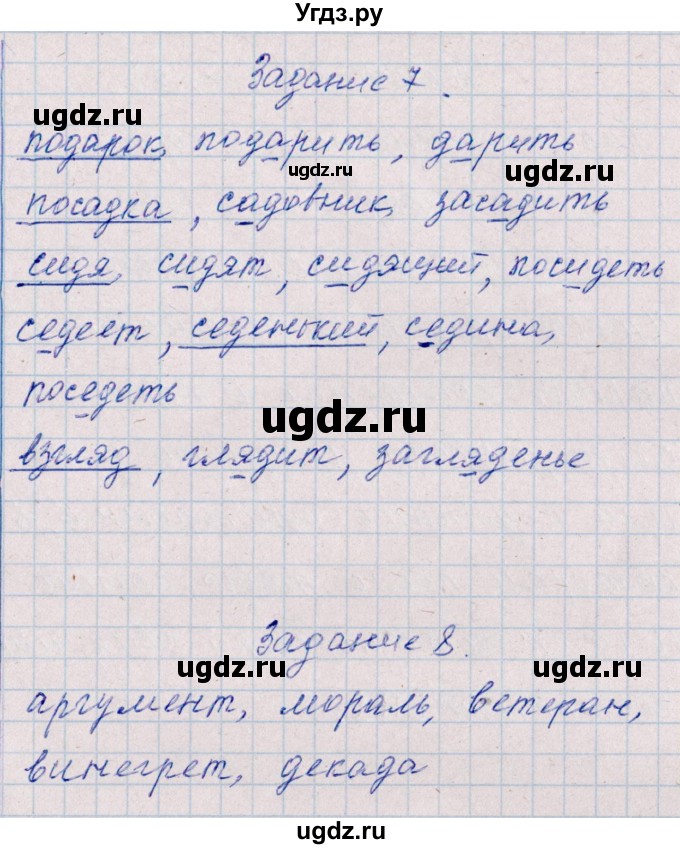 Угдз.ру
Задание 7.
ugdz.ru
подарок, подарить, дарить
ugdz.ru ugdz.ru
посадка, садовник, засадить
сидя, сидят, сидящий, посидеть
седеет, седенький, седина,
поседеть
ugdz.ru
взгляд, глядит, загляденье
Задание 8.
ugdz.ru ugdz.ru
аргумент, мораль, ветеран,
винегрет, декада
ugdz.ru